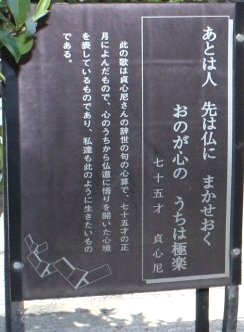 あとは人　先は仏に　まかせおく
おのが心の　うちは極楽
七十五才　貞心尼
此の歌は貞心尼さんの辞世の句の心算で、七十五才の正
月によんだもので、心のうちから仏道に悟りを開いた心境
を表しているものであり、私達も此のように生きたいもの
である。